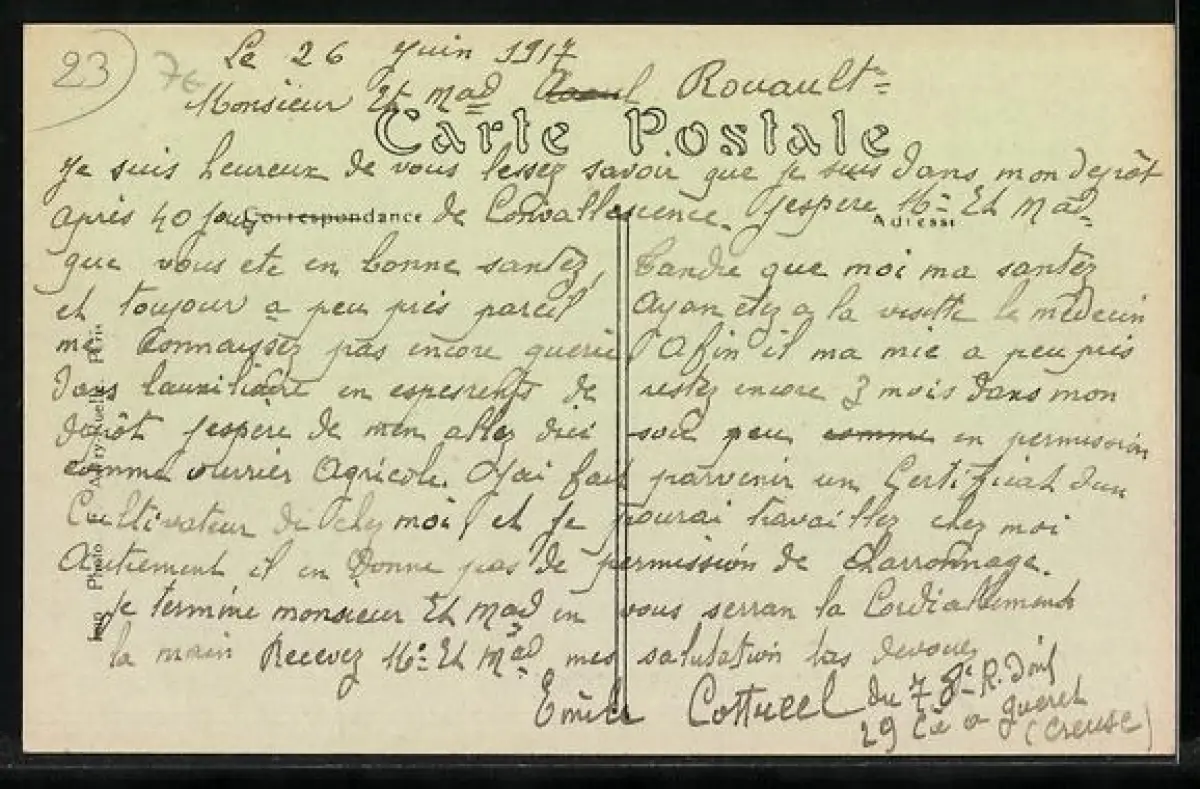 23) 7€
Le 26 Juin 1917
Monsieur Et Mad Rouault
Carte Postale
Je suis heureux de vous lessez savoir que je suis dans mon depôt
après 40 jour de Convallescence. J'espere Mr Et Mad
Correspondance Adresse
que vous ete en bonne santez, tandre que moi ma santez
et toujour a peu près pareil Ayan etez a la visitte le médecin
me Connaissez pas encore guerie Afin il ma mie a peu près
dans lauxiliaire en de restez encore 3 mois dans mon
depôt Jespere de men allez dici soie peu comme en permission
comme ouvrier Agricole. J'ai fait parvenir un Certificat dun
Cultivateur de chez moi, et je pourai travaillez chez moi
Autrement il en Donne pas de permission de charronnage.
Je termine monsieur Et Mad en vous serran la Cordiallement
la main Recevez Mr Et Mad mes salutation devouez
Emile Cottucel du 78e R. Dinf
29 Cie a gueret
(Creuse)
Imp Photo